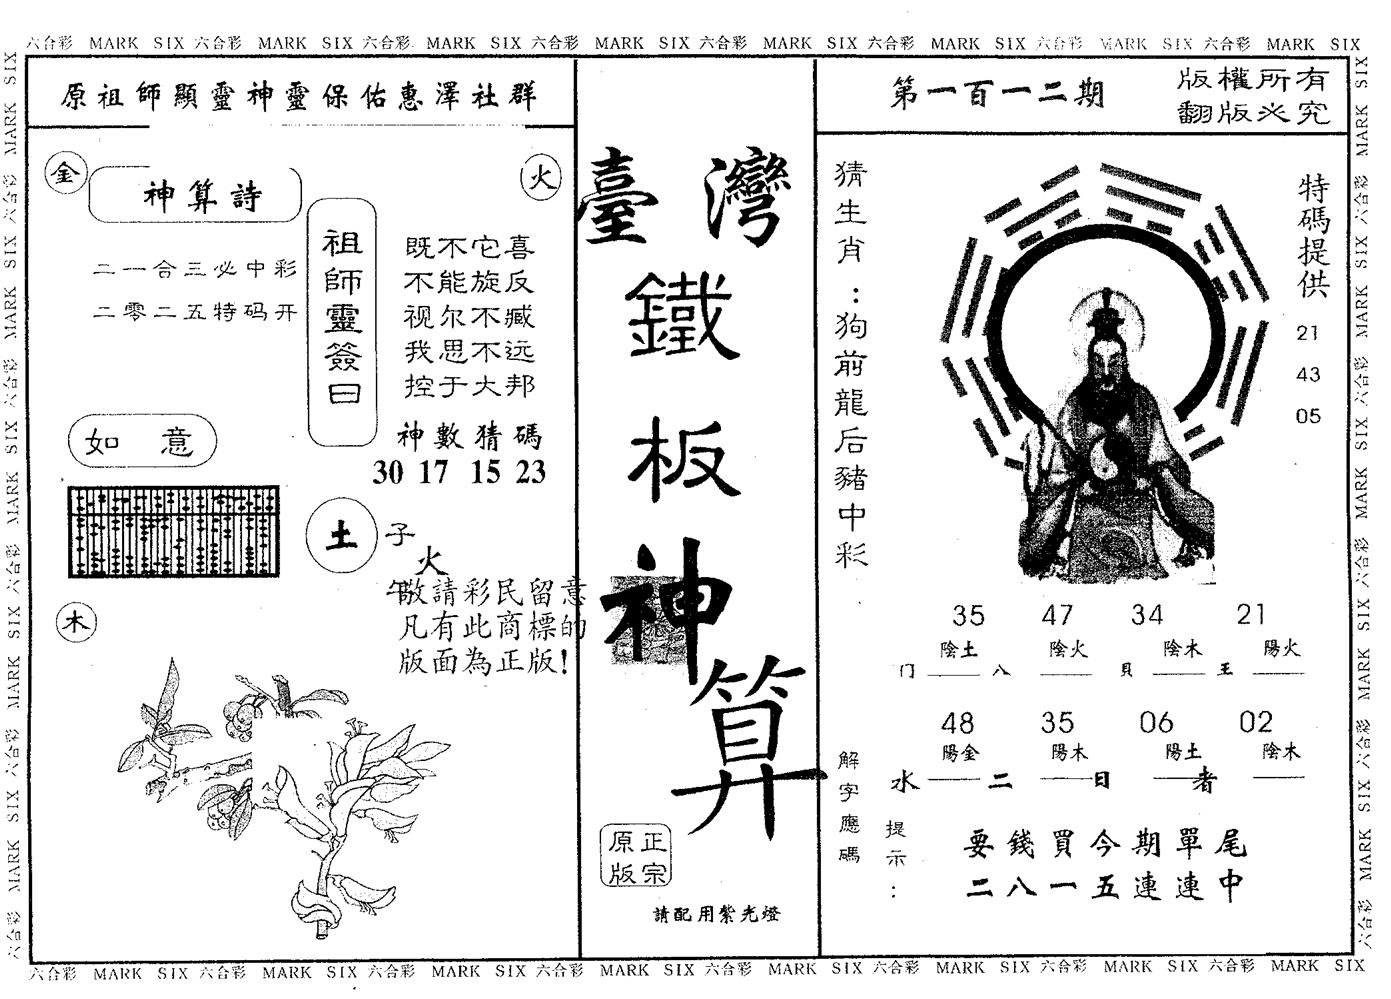 六合彩 MARK SIX 六合彩 MARK SIX 六合彩 MARK SIX 六合彩 MARK SIX 六合彩 MARK SIX 六合彩 MARK SIX 六合彩 MARK SIX 六合彩 MARK SIX
原祖師顯靈神靈保佑惠澤社群
金
火
神算詩
二一合三必中彩
二零二五特码开
祖師靈簽曰
既不它喜
不能旋反
视尔不臧
我思不远
控于大邦
神數猜碼
30 17 15 23
如意
土
子
火
午
木
敬請彩民留意
凡有此商標的
版面為正版!
臺灣
鐵
板
神
算
正宗
原版
請配用紫光燈
第一百一二期
版權所有
翻版必究
猜生肖:狗前龍后豬中彩
特碼提供
21
43
05
35 47 34 21
陰土 陰火 陰木 陽火
门 八 貝 王
48 35 06 02
陽金 陽木 陽土 陰木
水 二 日 者
解字應碼
提示:
要錢買今期單尾
二八一五連連中
六合彩 MARK SIX 六合彩 MARK SIX 六合彩 MARK SIX 六合彩 MARK SIX 六合彩 MARK SIX 六合彩 MARK SIX 六合彩 MARK SIX 六合彩 MARK SIX